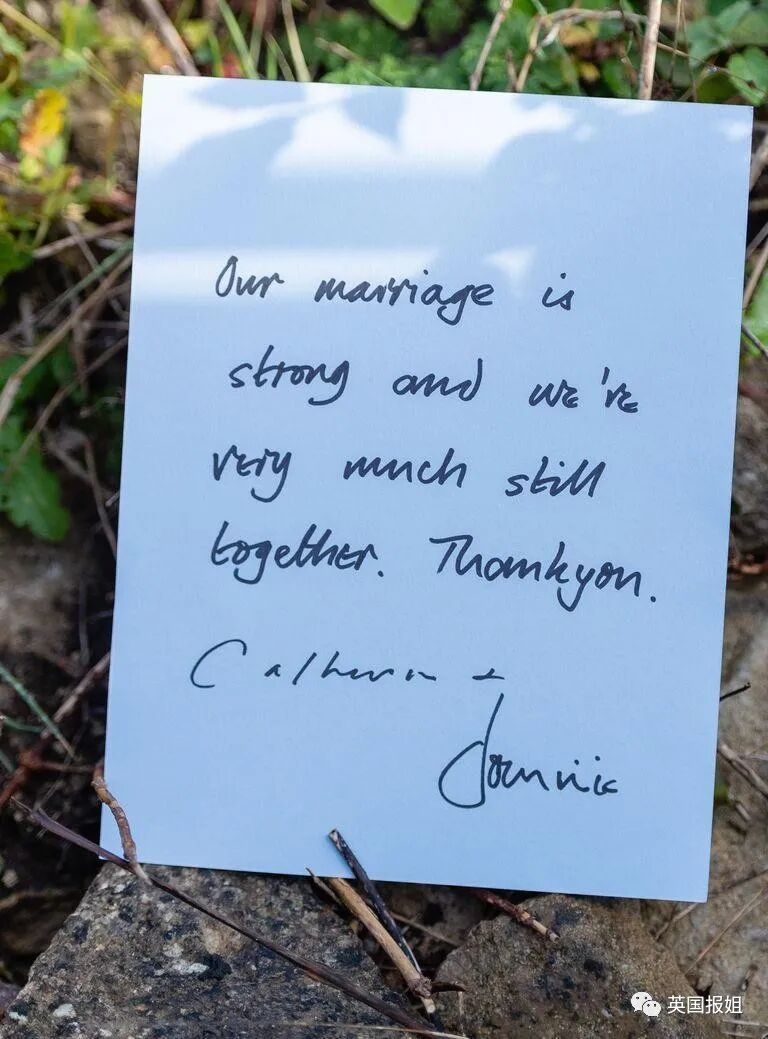 Our marriage is
strong and we're
very much still
together. Thankyou.
Catherine +
Dominic
英国报姐